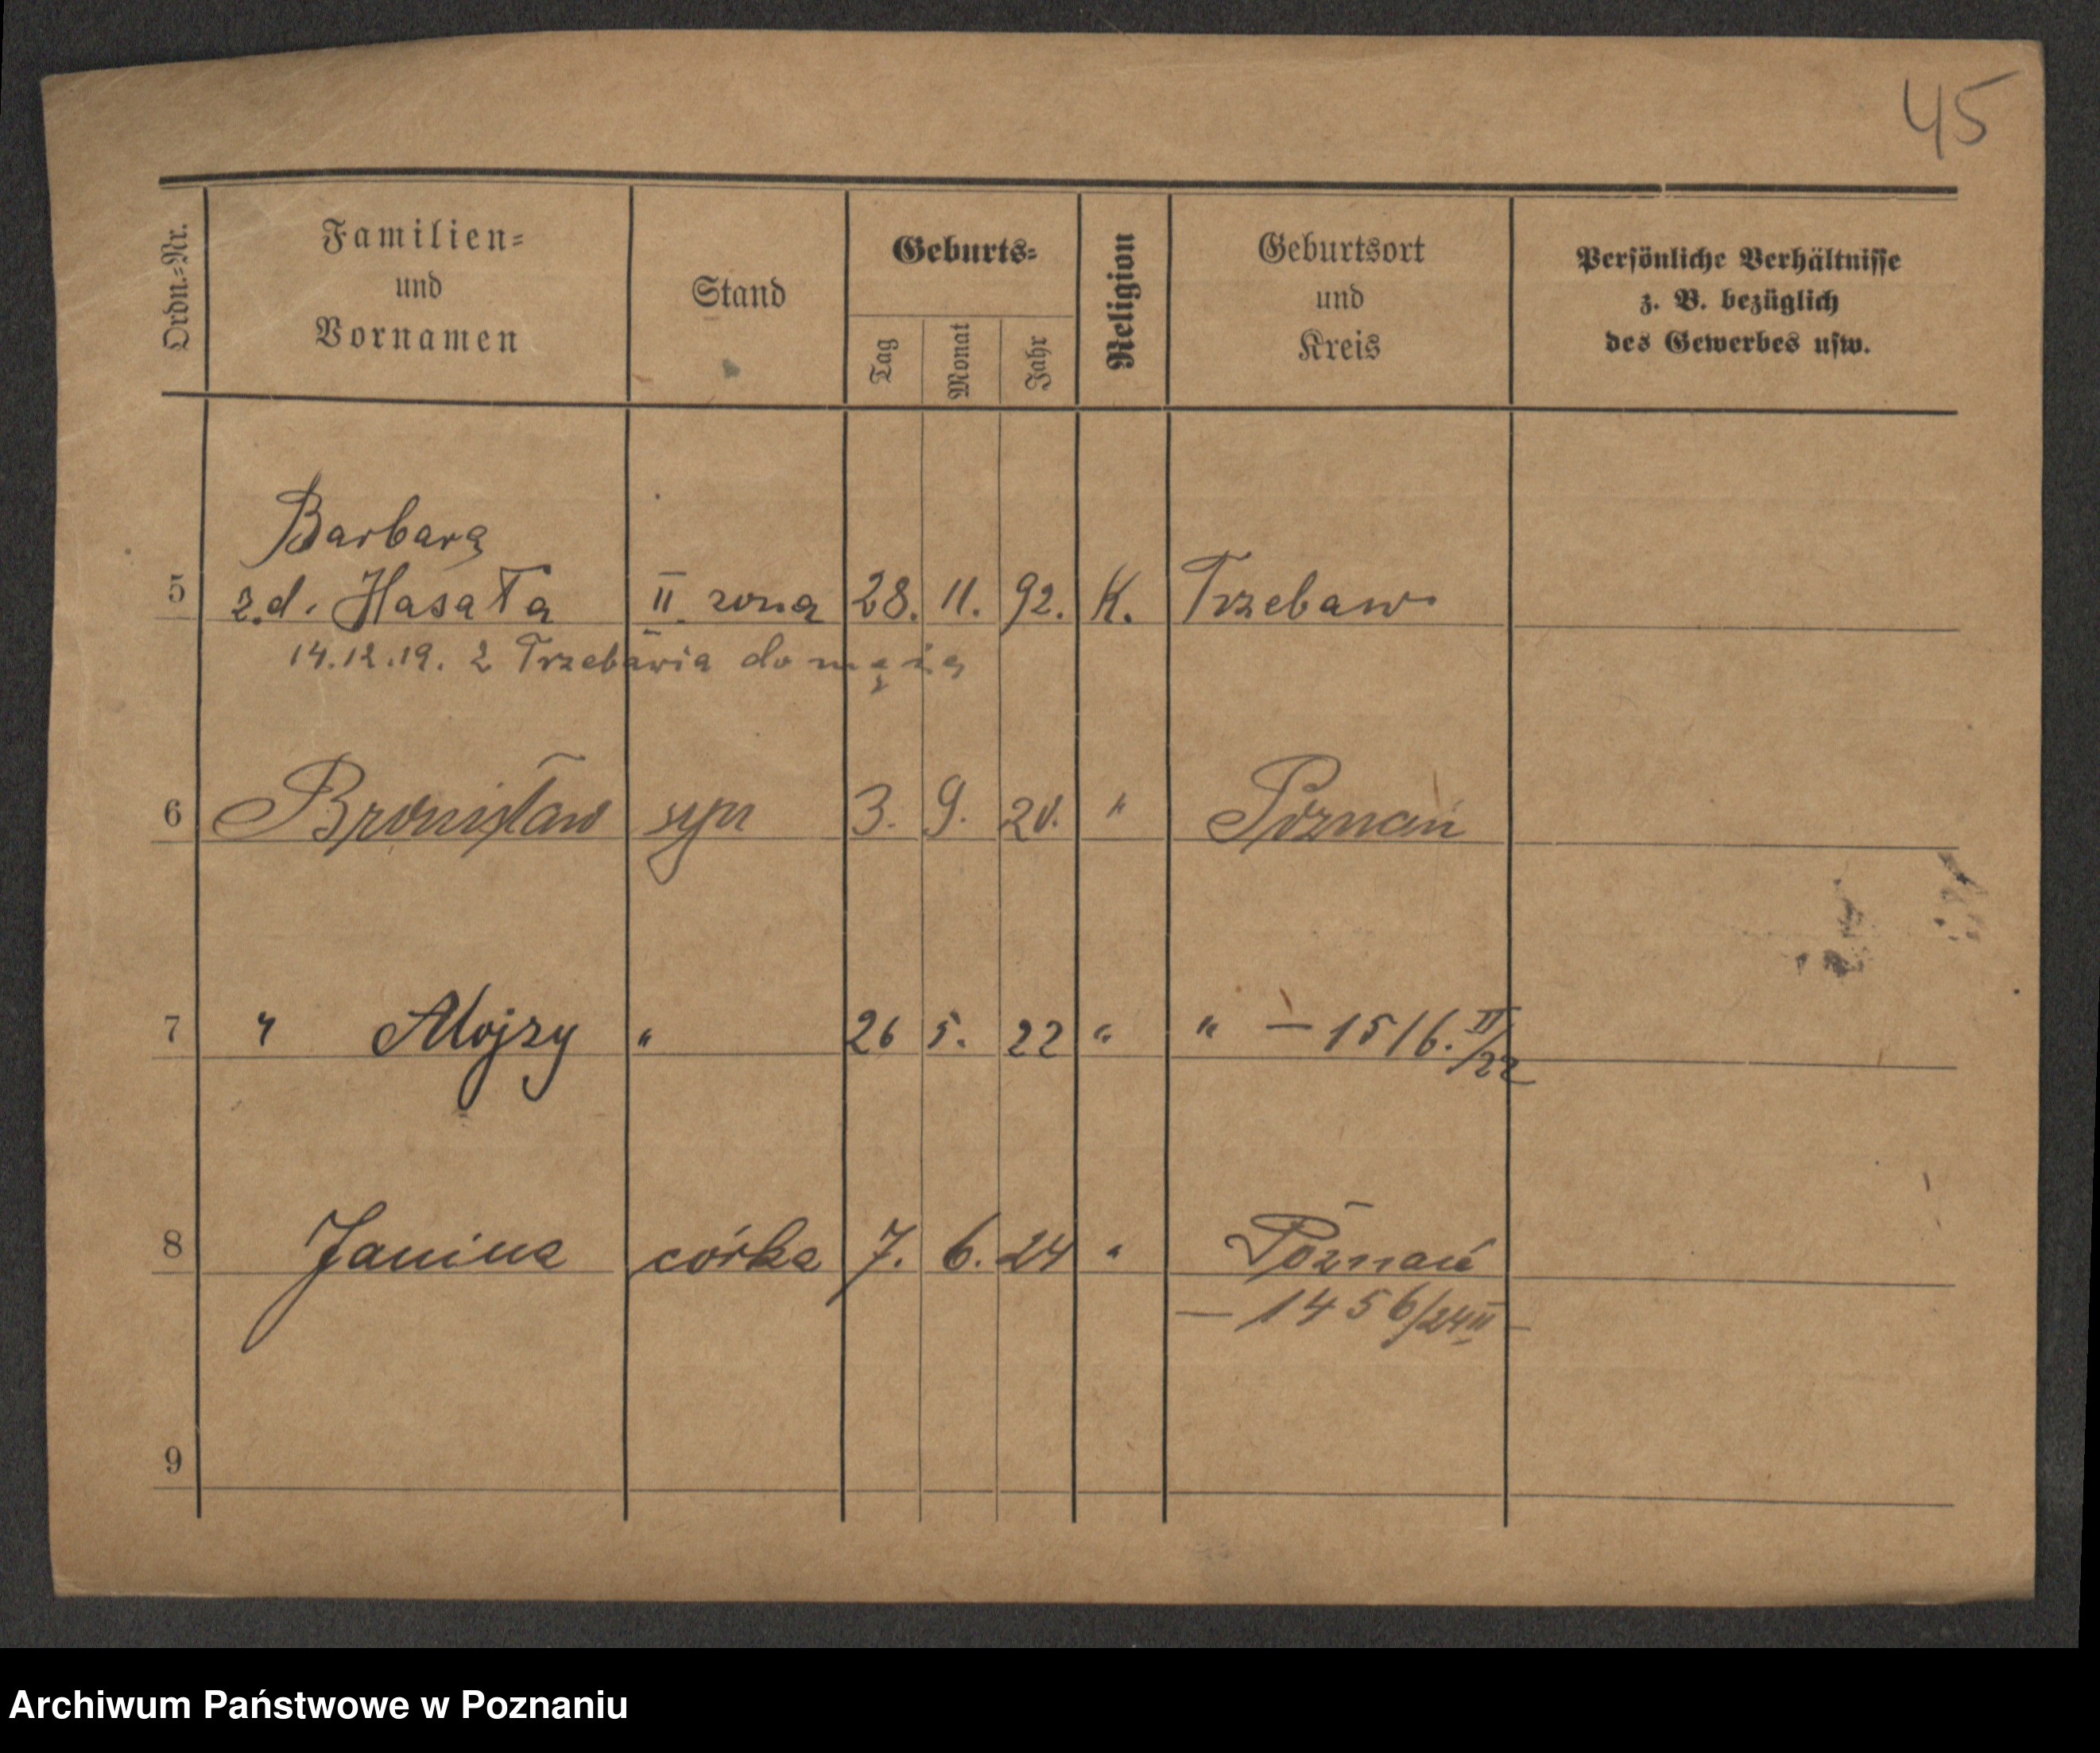 45
Ordn.=Nr.
Familien=
und
Vornamen
Stand
Geburts=
Tag
Monat
Jahr
Religion
Geburtsort
und
Kreis
Persönliche Verhältnisse
z. B. bezüglich
des Gewerbes usw.
Barbara
5 z.d. Hasała II. zona 28. 11. 92. K. Trzebaw
14.12.19. z Trzebawia do męża
6 Bronisław syn 3. 9. 20. " Poznań
7 " Alojzy " 26 5. 22 " " — 1516. II/22
8 Janina córka 7. 6. 24 " Poznań
— 1456/24 II —
9
Archiwum Państwowe w Poznaniu